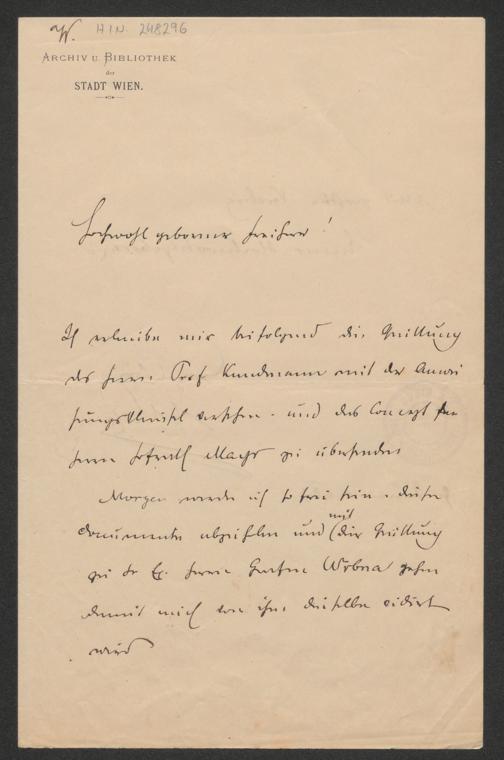 W. HIN. 248296
ARCHIV U. BIBLIOTHEK
der
STADT WIEN.
Hochwohlgeborner Freiherr!
Ich erlaube mir beifolgend die Quittung
des Herrn Prof Kundmann mit der Anwei
sungsklausel versehen und das Concept
Herrn Hofrath zu übersenden
Morgen werde ich so frei sein diese
Documente abzuholen und mit der Quittung
zu Sr Ex. Herrn Grafen Wrbna gehen
damit auch von ihm dieselbe vidirt
wird